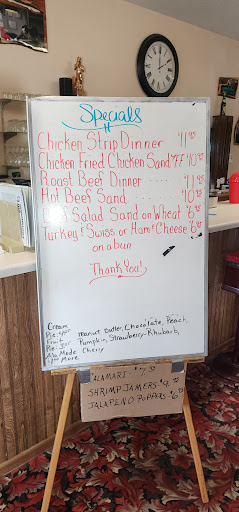 Specials
Chicken Strip Dinner $11.95
Chicken Fried Chicken Sand w/FF $10.95
Roast Beef Dinner ..... $11.95
Hot Beef Sand. ..... $10.95
Salad Sand on Wheat $6.95
Turkey & Swiss or Ham & Cheese $6.95
on a bun
Thank You!
Cream
Pie- Peanut Butter, Chocolate, Peach,
Fruit
Pie- Pumpkin, Strawberry-Rhubarb,
Ala Mode Cherry
More
CALAMARI
SHRIMP JAMERS
JALAPENO POPPERS